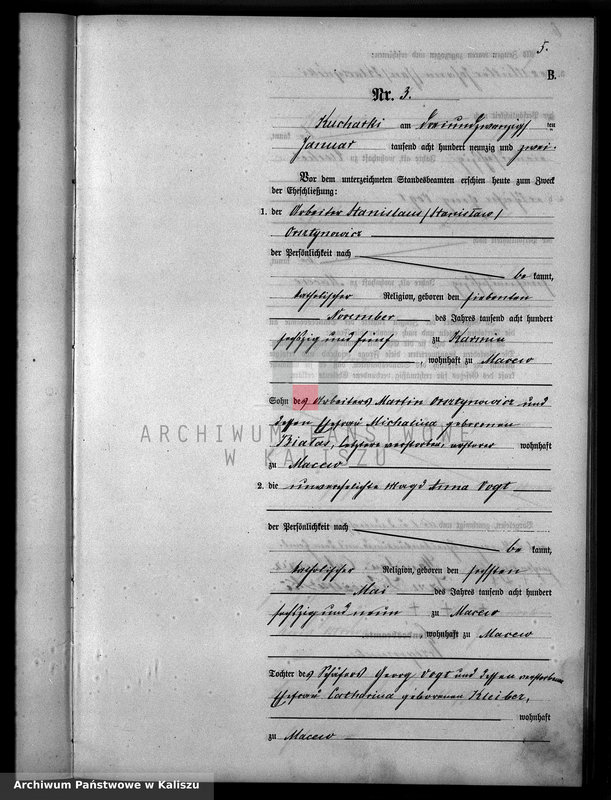 5.
B.
Nr. 3.
Kucharki am dreiundzwanzig ten
Januar tausend acht hundert neunzig und zwei.
Vor dem unterzeichneten Standesbeamten erschien heute zum Zweck
der Eheschließung:
1. der Arbeiter Stanislaus /Stanisław/
der Persönlichkeit nach
be kannt,
katholischer Religion, geboren den siebenten
November des Jahres tausend acht hundert
sechszig und fünf zu Karmin
, wohnhaft zu Macew
Sohn des Arbeiters Martin und
dessen Ehefrau Michalina geborenen
letztere verstorben, ersterer wohnhaft
zu Macew
2. die unverehelichte Magd Anna Vogt
der Persönlichkeit nach
be kannt,
katholischer Religion, geboren den sechsten
Mai des Jahres tausend acht hundert
sechszig und neun zu Macew
, wohnhaft zu Macew
Tochter des Schäfers Georg Vogt und dessen verstorbenen
Ehefrau Catharina geborenen Kleiber,
wohnhaft
zu Macew
ARCHIWUM PAŃSTWOWE
W KALISZU
Archiwum Państwowe w Kaliszu